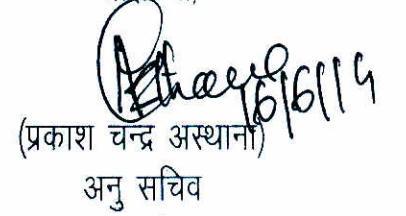 16/6/14
(प्रकाश चन्द्र अस्थाना)
अनु सचिव